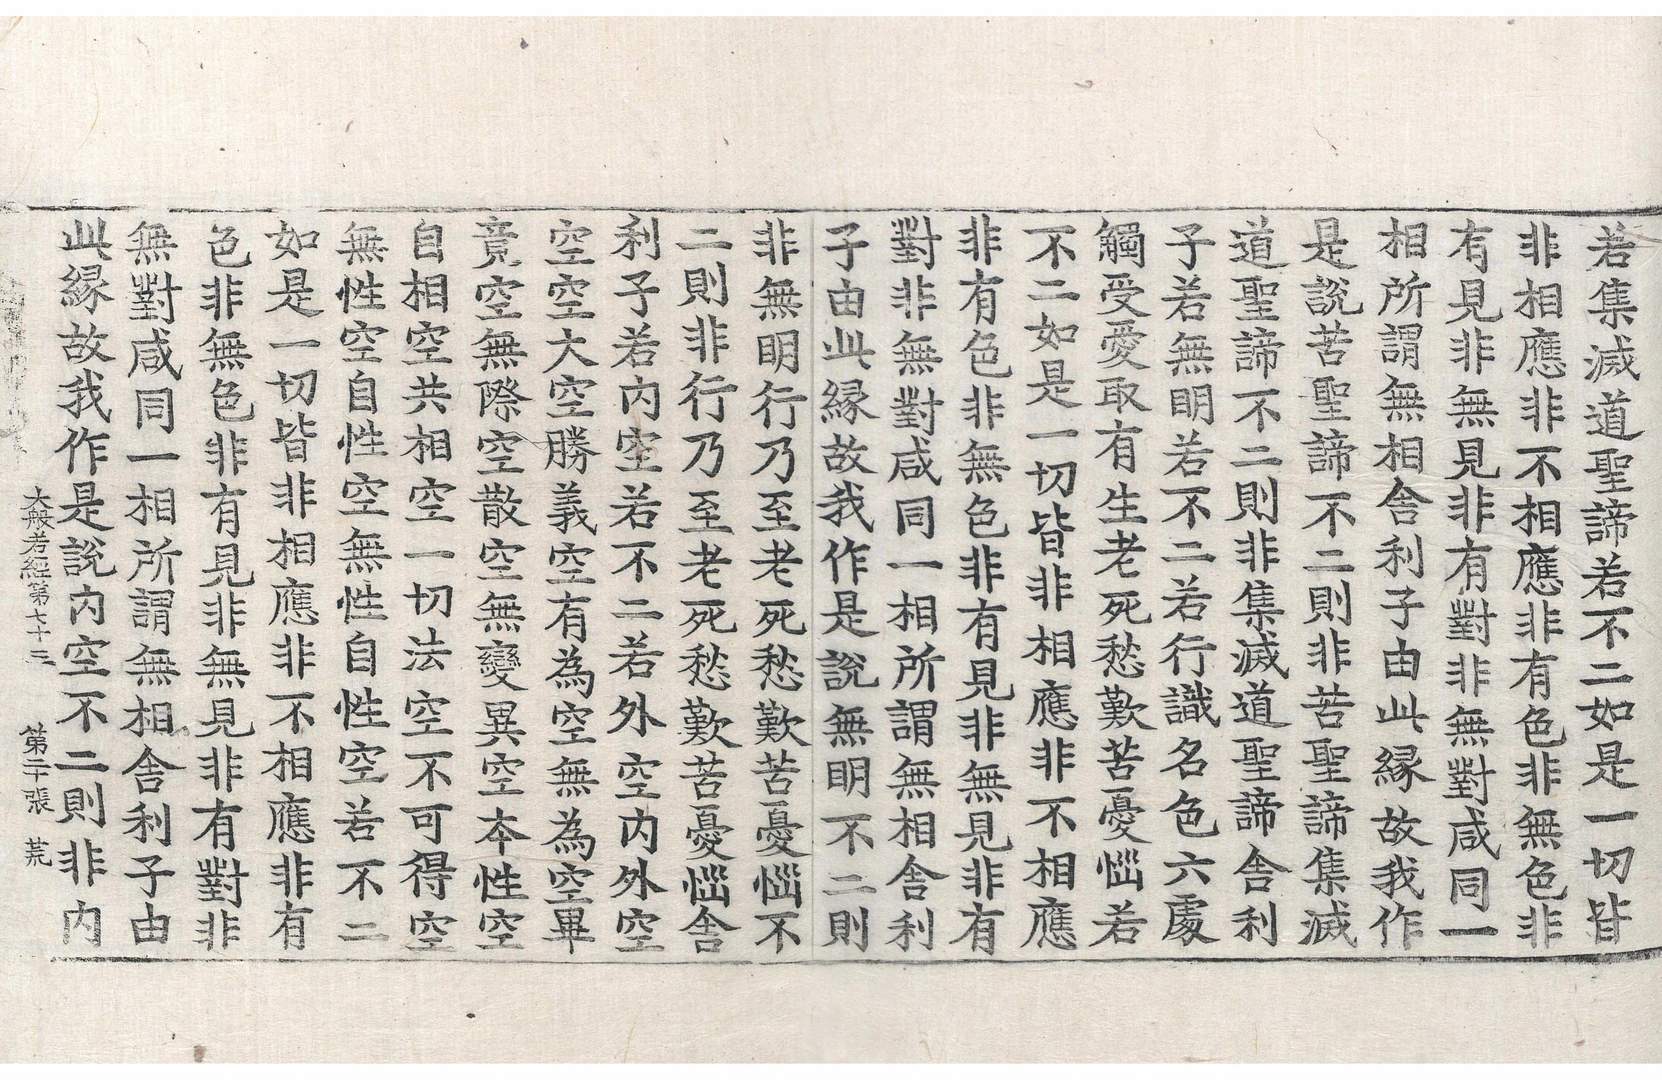 若集滅道聖諦若不二如是一切皆
非相應非不相應非有色非無色非
有見非無見非有對非無對咸同一
相所謂無相舍利子由此緣故我作
是說苦聖諦不二則非苦聖諦集滅
道聖諦不二則非集滅道聖諦舍利
子若無明若不二若行識名色六處
觸受愛取有生老死愁歎苦憂惱若
不二如是一切皆非相應非不相應
非有色非無色非有見非無見非有
對非無對咸同一相所謂無相舍利
子由此緣故我作是說無明不二則
非無明行乃至老死愁歎苦憂惱不
二則非行乃至老死愁歎苦憂惱舍
利子若內空若不二若外空內外空
空空大空勝義空有為空無為空畢
竟空無際空散空無變異空本性空
自相空共相空一切法空不可得空
無性空自性空無性自性空若不二
如是一切皆非相應非不相應非有
色非無色非有見非無見非有對非
無對咸同一相所謂無相舍利子由
此緣故我作是說內空不二則非內
大般若經第七十三 第二十張 荒